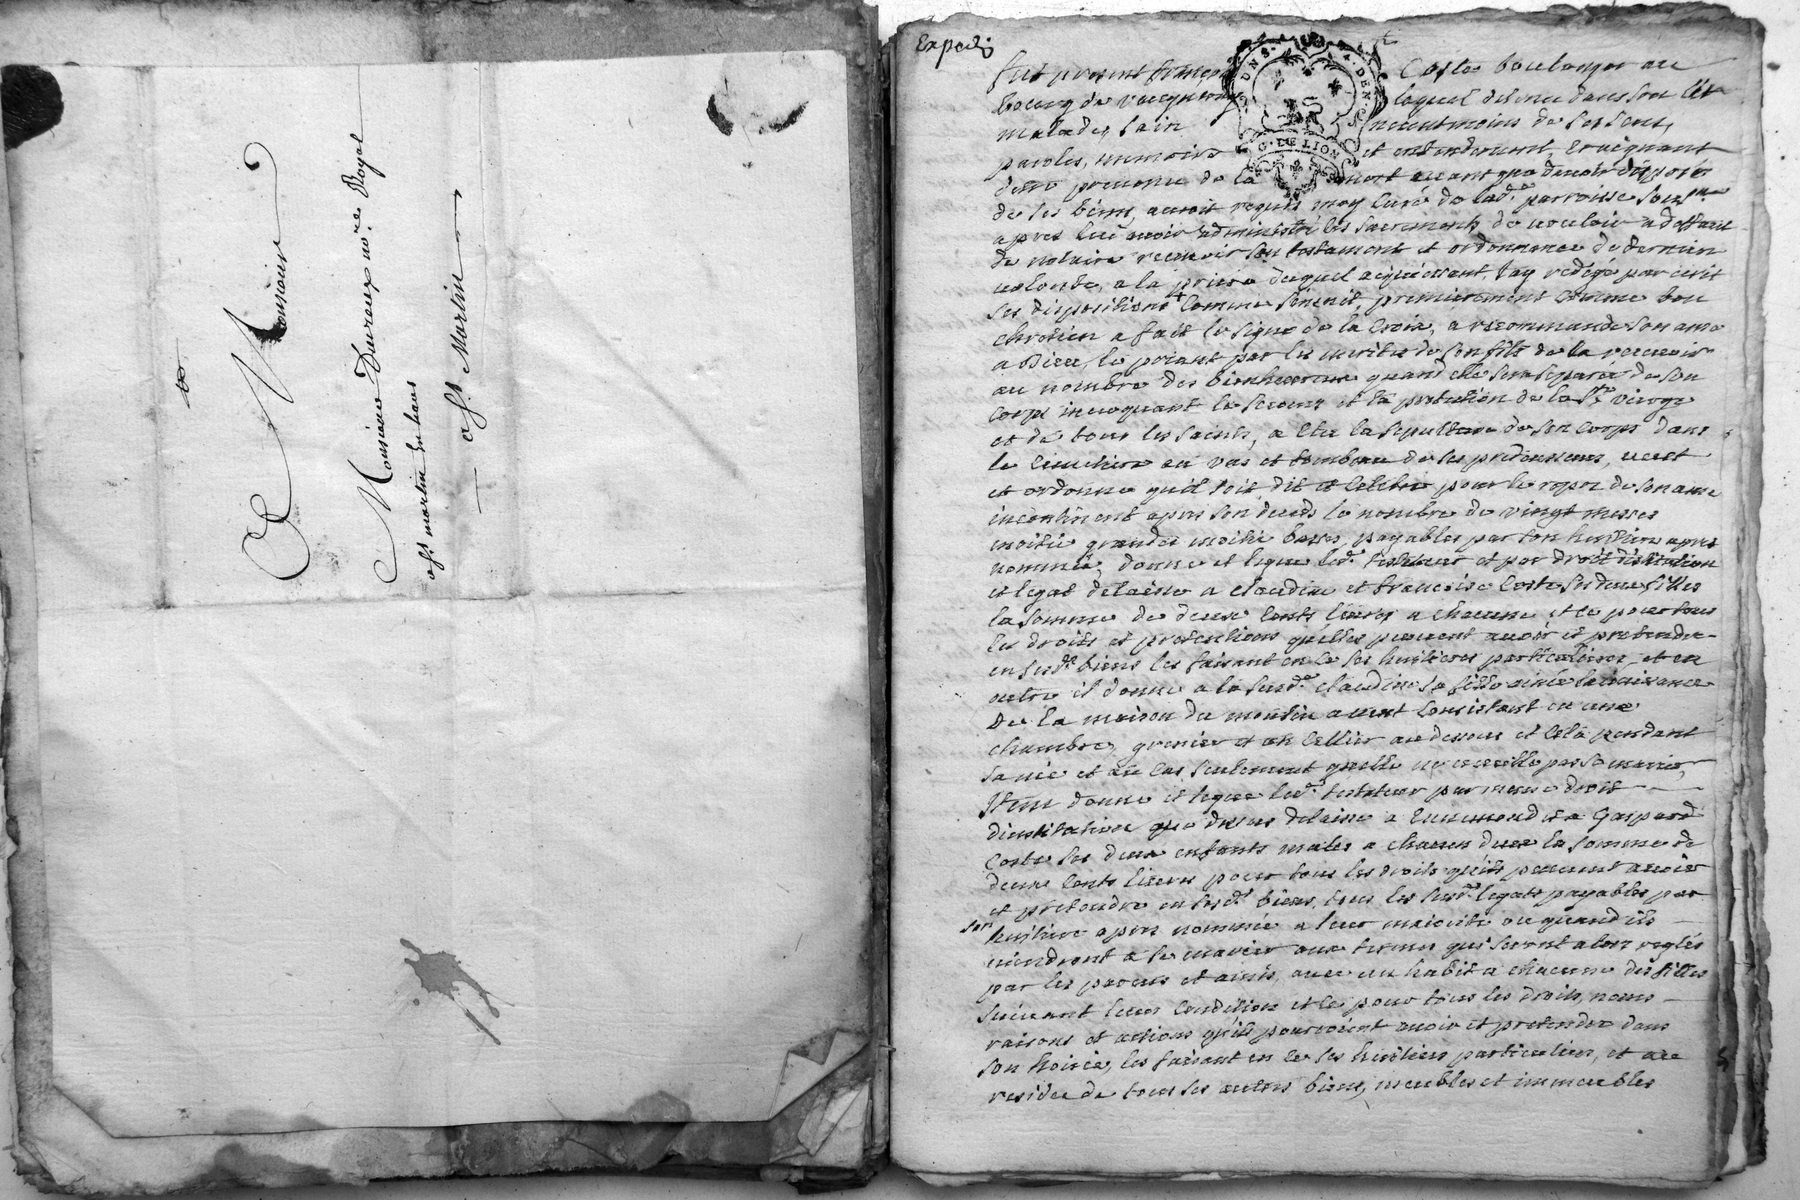 A Monsieur
Monsieur Duvreux nore Royal
a st martin du haus
a St. Martin
Expedi
fut present françois Coste boulanger au
bourg de vaugneray lequel detenu dans son lit
malade, sain neantmoins de ses sens,
paroles, memoire et entendement, craignant
detre prevenu de la mort avant que davoir disposé
de ses biens, auroit requis moy curé de lad. parroisse soussné
apres lui avoir administré les sacrements de vouloir a deffaut
de notaire recevoir son testament et ordonnance de derniere
volonté, a la priere duquel acquiescant, Jay redigé par ecrit
ses dispositions comme sensuit, premierement comme bon
chretien a fait le signe de la Croix, a recommandé son ame
a Dieu, le priant par les merites de son fils de la recevoir
au nombre des bienheureux quand elle sera separée de son
corps invoquant le secours et la protection de la Ste vierge
et de tous les saints, a elu la sepulture de son corps dans
le cimetiere au vas et tombeau de ses predecesseurs, veut
et ordonne quil soit dit et celebré pour le repos de son ame
incontinent apres son deceds le nombre de vingt messes
moitié grandes moitié basses, payables par son heritiere apres
nommée, donne et legue led. testateur et par droit distitution
et legat delaisse a claudine et francoise Coste ses deux filles
la somme de deux cents livres a chacune et ce pour tous
les droits et pretentions quelles peuvent avoir et pretendre
en sesd. biens les faisant en ce ses heritieres particulieres, et en
outre il donne a la susd. claudine sa fille ainée la jouissance
De la maison du moulin a vent consistant en une
chambre, grenier et un cellier au dessous et cela pendant
sa vie et au cas seulement quelle ne veuille pas se marier,
Item donne et legue led. testateur par meme droit
dinstitution que dessus delaisse a Ennemond et a Gaspard
Coste ses deux enfants males a chacun deux la somme de
deux cents livres pour tous les droits quils peuvent avoir
et pretendre en sesd. biens, tous les susd. legats payables par
son heritiere apres nommée a leur majorité ou quand ils
viendront a se marier aux termes qui seront alors reglés
par les parens et amis, avec un habit a chacune des filles
suivant leur condition et ce pour tous les droits, noms
raisons et actions quils pourroient avoir et pretendre dans
son hoirie, les faisant en ce ses heritiers particuliers, et au
residu de tous ses autres biens, meubles et immeubles